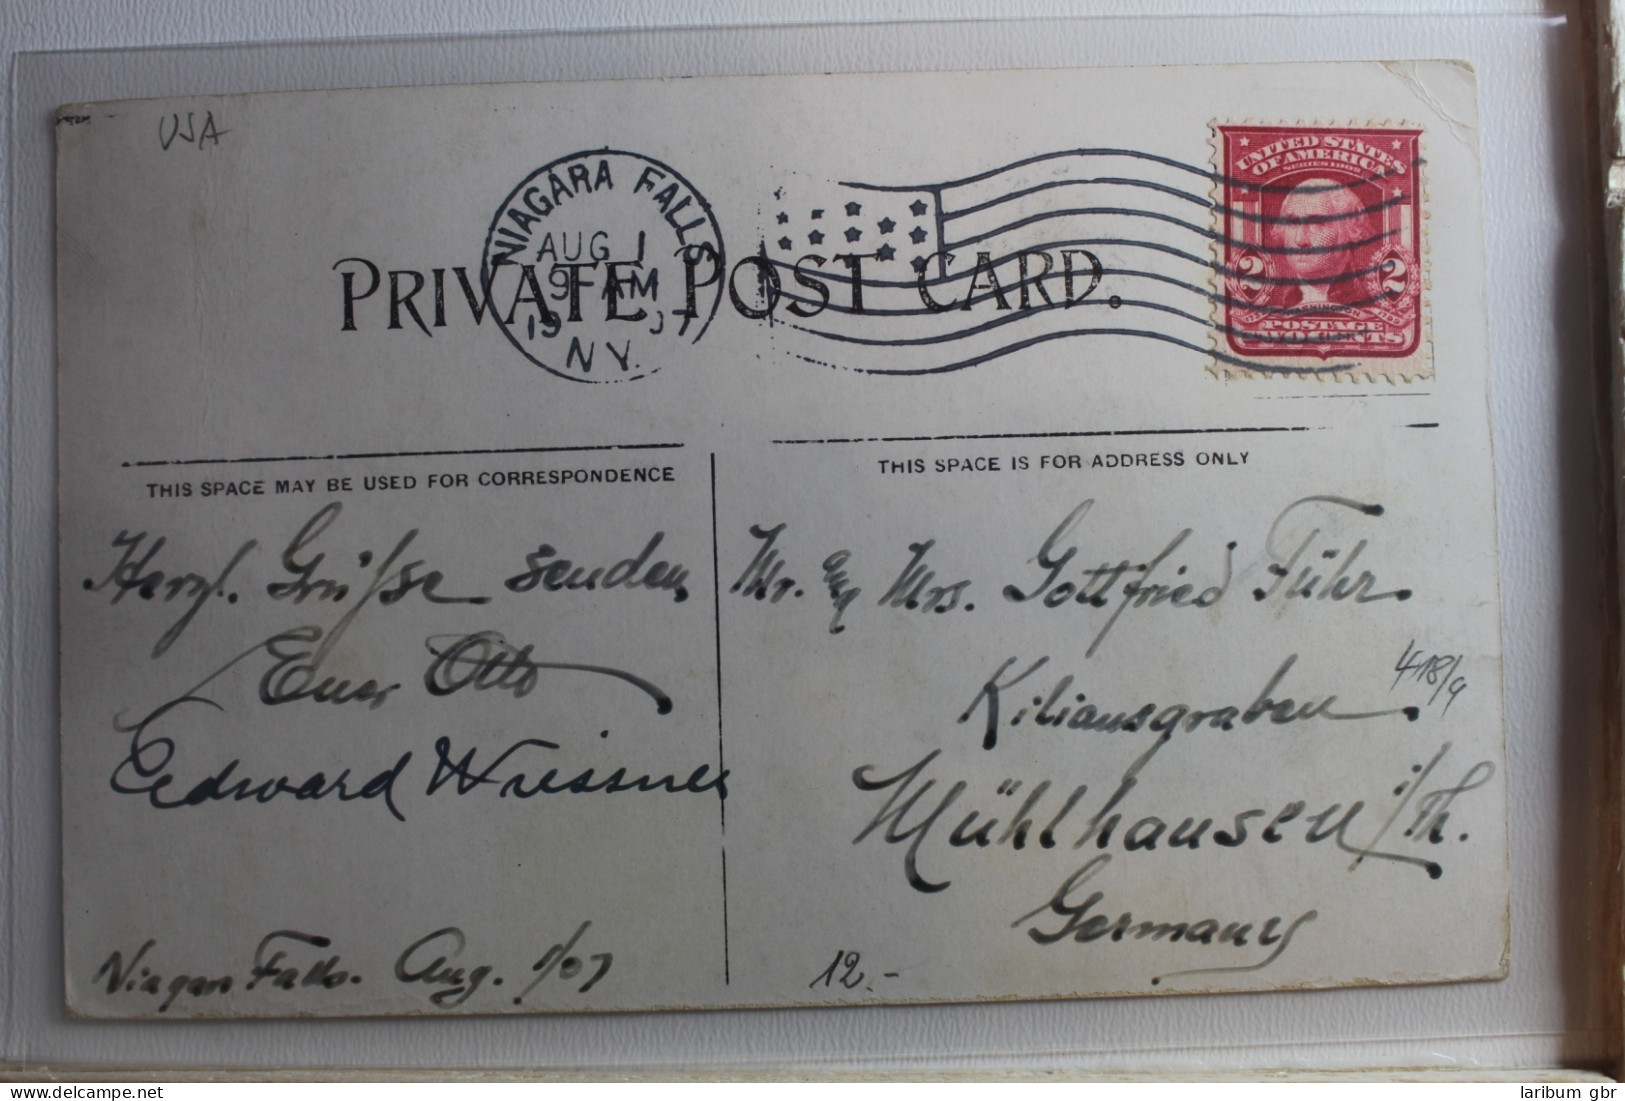 USA
NIAGARA FALLS
AUG 1
9 AM
1907
N.Y.
UNITED STATES
OF AMERICA
SERIES 1902
2 2
WASHINGTON
POSTAGE
TWO CENTS
PRIVATE POST CARD.
THIS SPACE MAY BE USED FOR CORRESPONDENCE
THIS SPACE IS FOR ADDRESS ONLY
Herzl. Grüsse senden
Euer Otto
Edward Wiessner
Niagara Falls. Aug. 1/07
Mr. and Mrs. Gottfried Führ.
Kiliansgraben
418/9
Mühlhausen i/Th.
Germany
12.-
laribum gbr